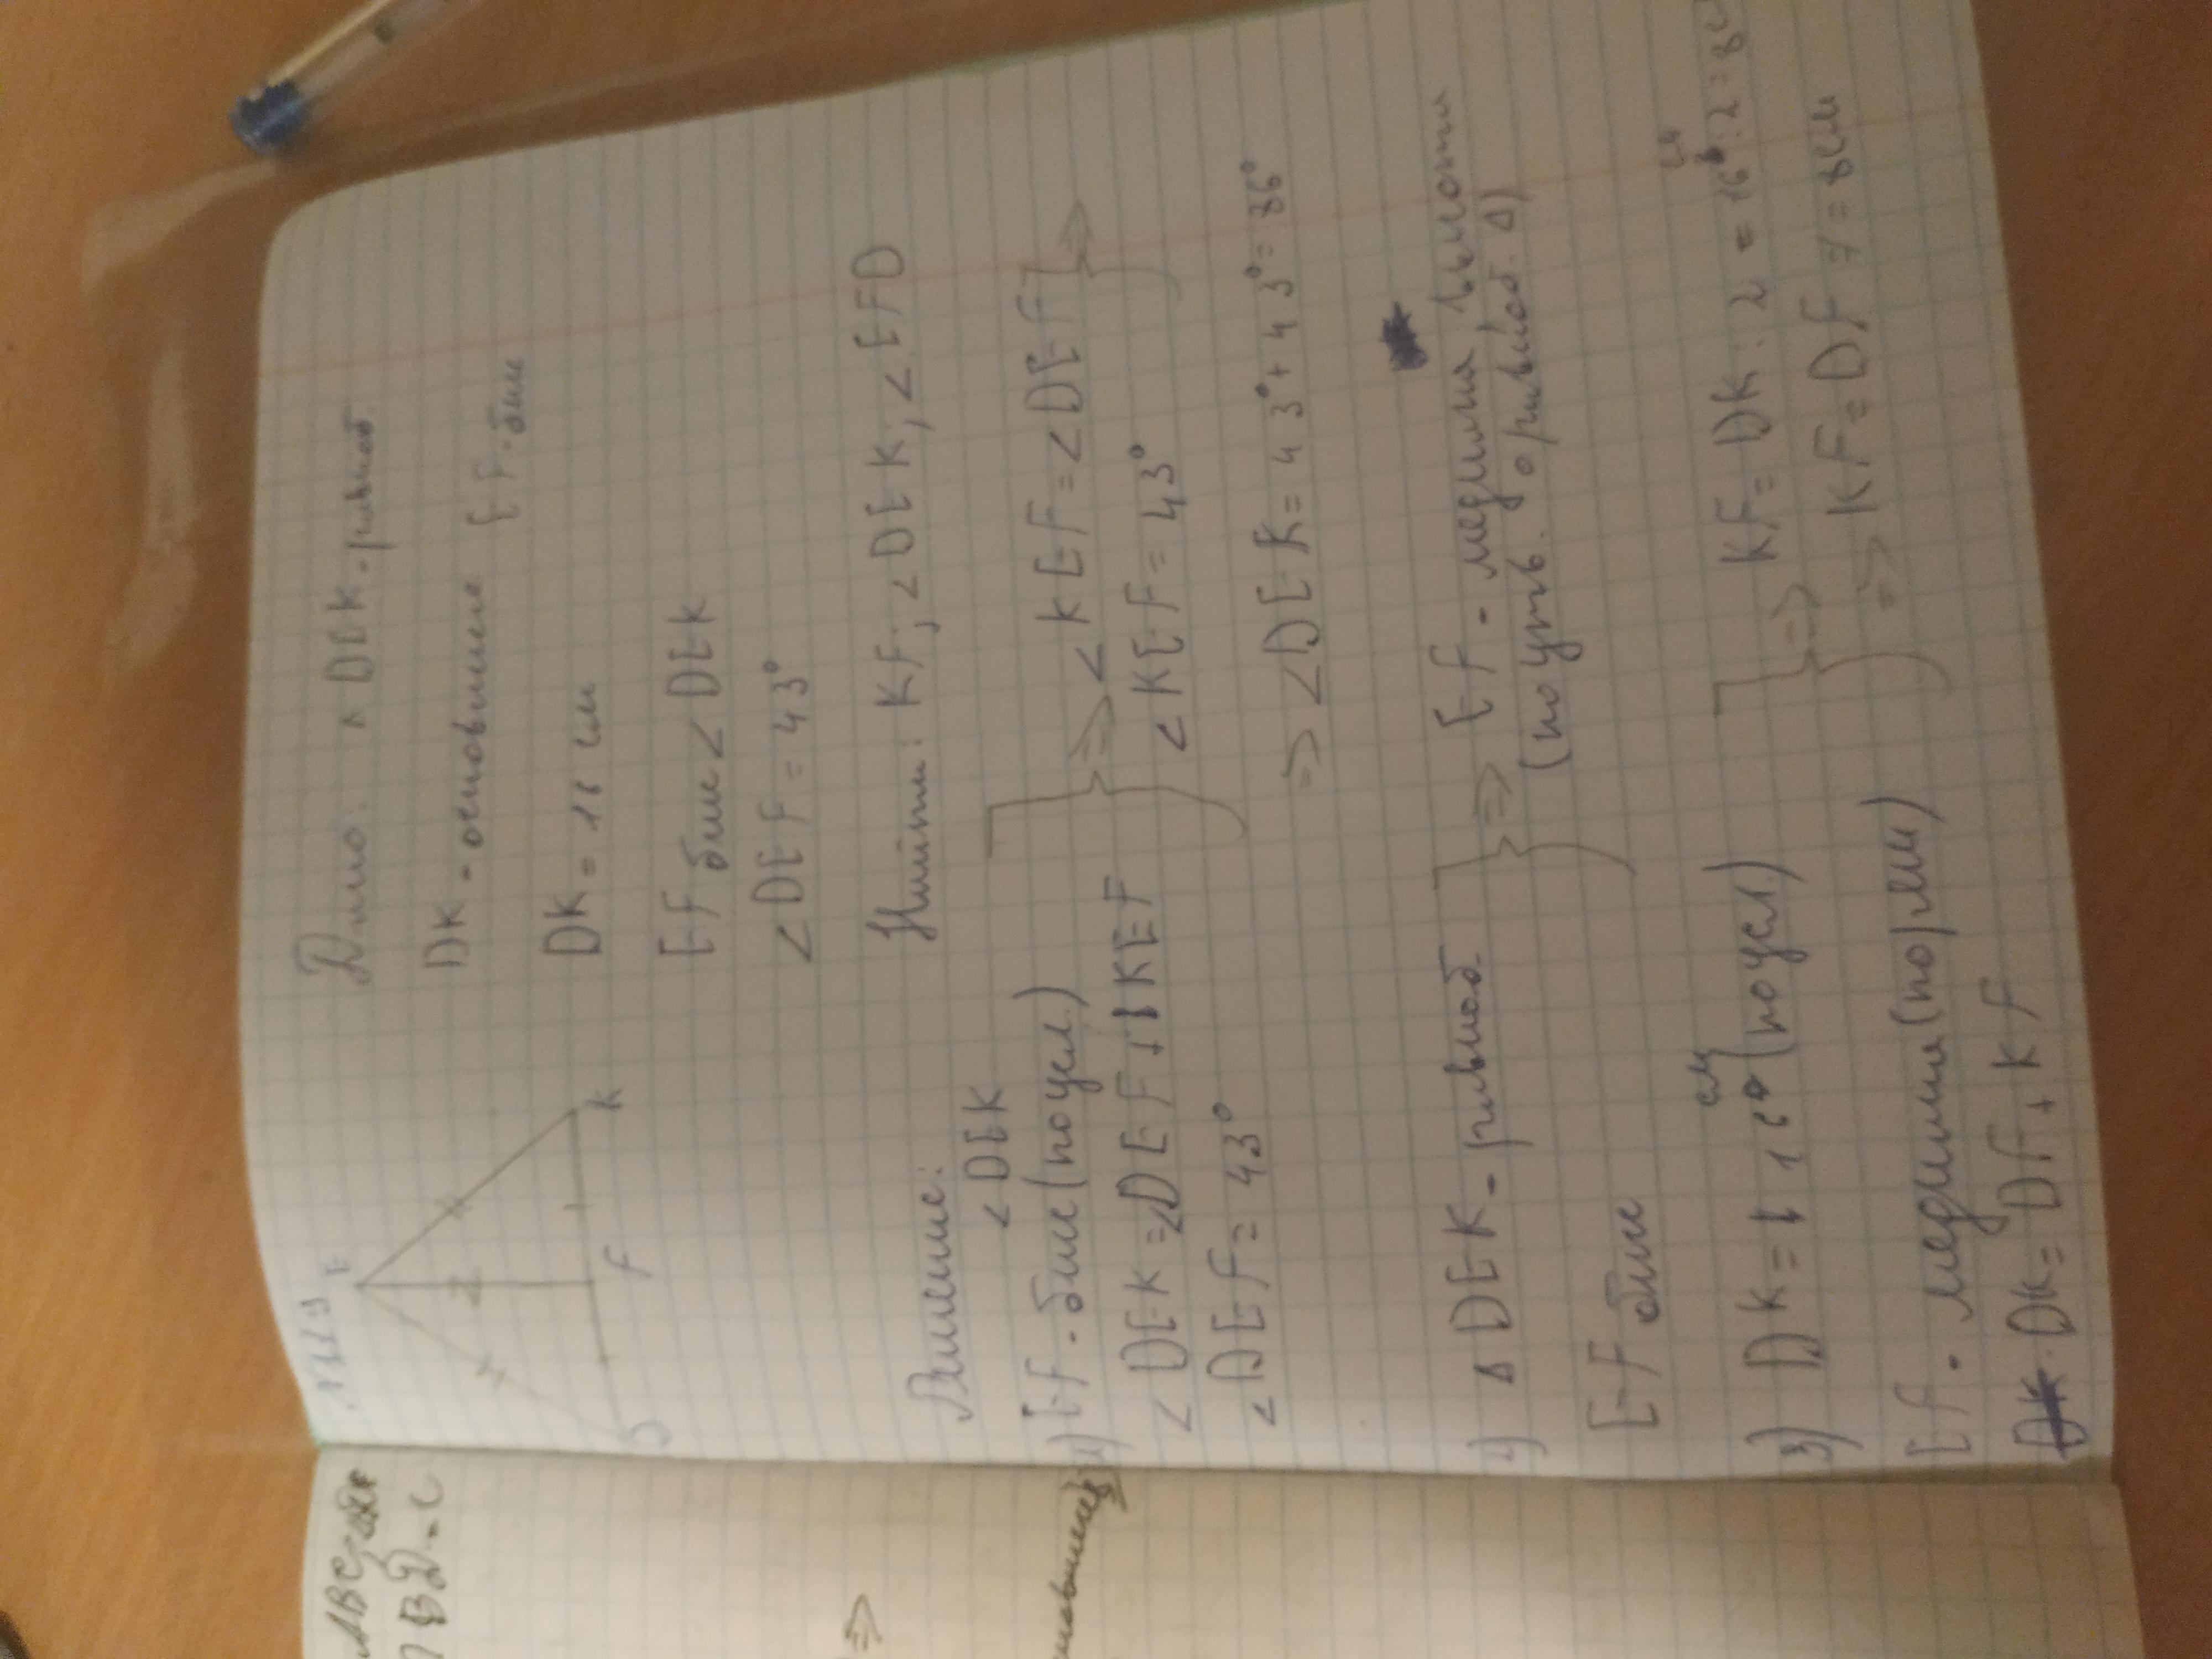 №119
E
K
F
D
Дано: △DEK - равноб.
DK - основание EF - бис
DK = 16 см
EF бис ∠DEK
∠DEF = 43°
Найти: KF; ∠DEK; ∠EFD
Решение:
∠DEK
1) EF - бис (по усл.)
∠DEK = ∠DEF + KEF
∠DEF = 43°
⇒ ∠KEF = ∠DEF
∠KEF = 43°
⇒
⇒ ∠DEK = 43° + 43° = 86°
2) △DEK - равноб
EF бис
⇒ EF - медиана высота
(по утв. о равноб. △)
3) DK = 16 см (по усл)
EF - медиана (по реш)
DK = DF + KF
⇒ KF = DK : 2 = 16 см : 2 = 8 с
⇒ KF = DF = 8 см
ABC
⇒